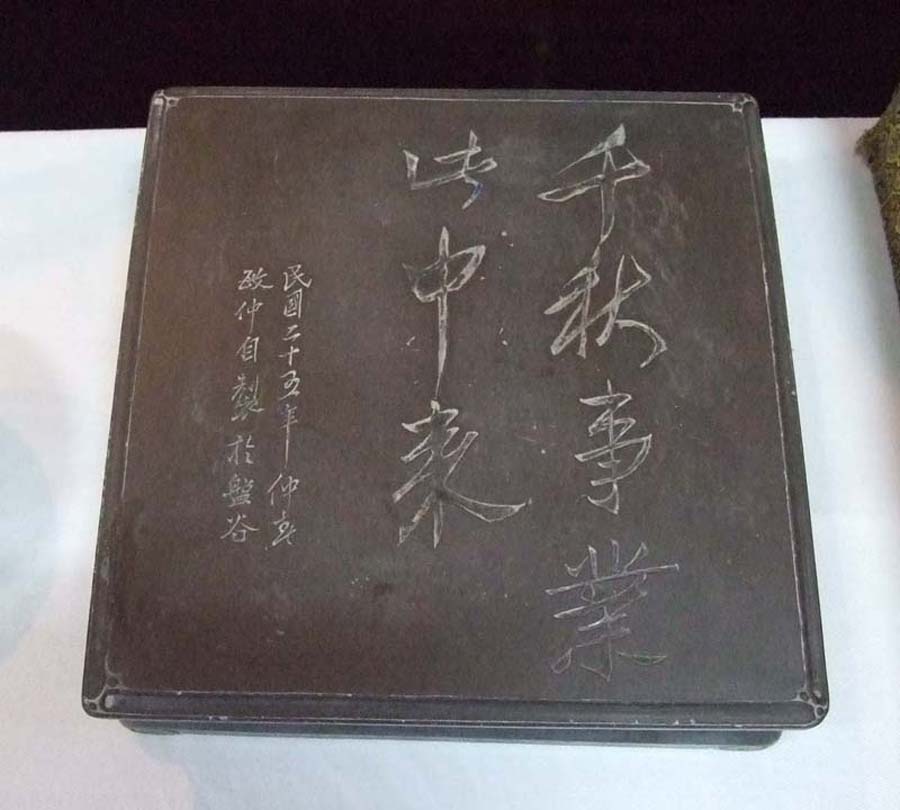 千秋事業
此中来
民國二十五年仲春
仲自製於盤谷